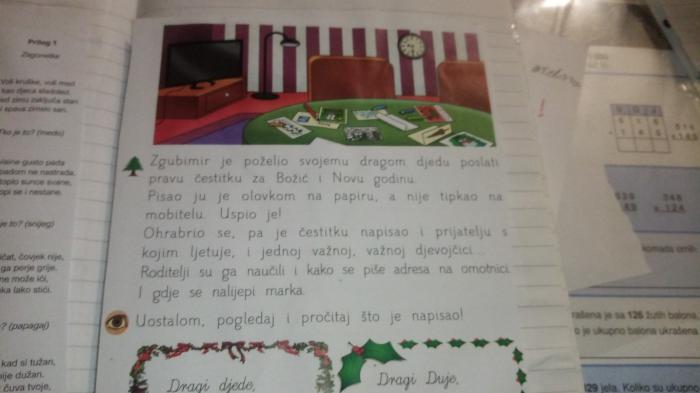 Prilog 1
Zagonetke
Voli kruške, voli med
kao djeca sladoled.
zimu zaključa stan
i spava zimski san.
Tko je to? (medo)
gusto pada
padom ne nastrada.
toplo sunce svane,
topi se i nestane.
je to? (snijeg)
čovjek nije,
ga perje grije.
ne može ići,
lako stići.
(papagaj)
kad si tužan,
nije dužan.
čuva tvoje,
Zgubimir je poželio svojemu dragom djedu poslati
pravu čestitku za Božić i Novu godinu.
Pisao ju je olovkom na papiru, a nije tipkao na
mobitelu. Uspio je!
Ohrabrio se, pa je čestitku napisao i prijatelju s
kojim ljetuje, i jednoj važnoj, važnoj djevojčici...
Roditelji su ga naučili i kako se piše adresa na omotnici.
I gdje se nalijepi marka.
Uostalom, pogledaj i pročitaj što je napisao!
Dragi djede,
Dragi Duje,
348
- 124
komada
je sa 126 žutih balona.
je ukupno balona ukrašena
129 jela. Koliko su ukupno